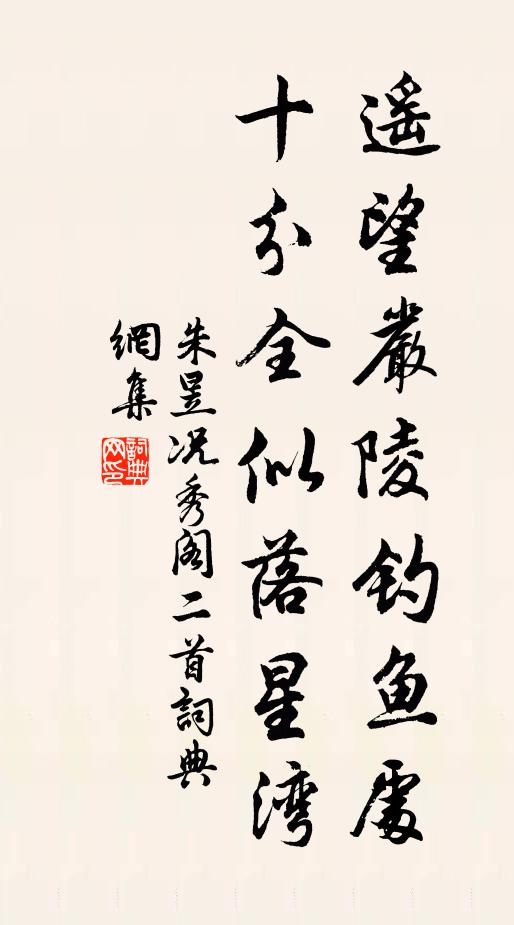 遥望嚴陵钓鱼處
十分全似落星湾
朱昱况秀阁二首詞典
網集
詞典網印